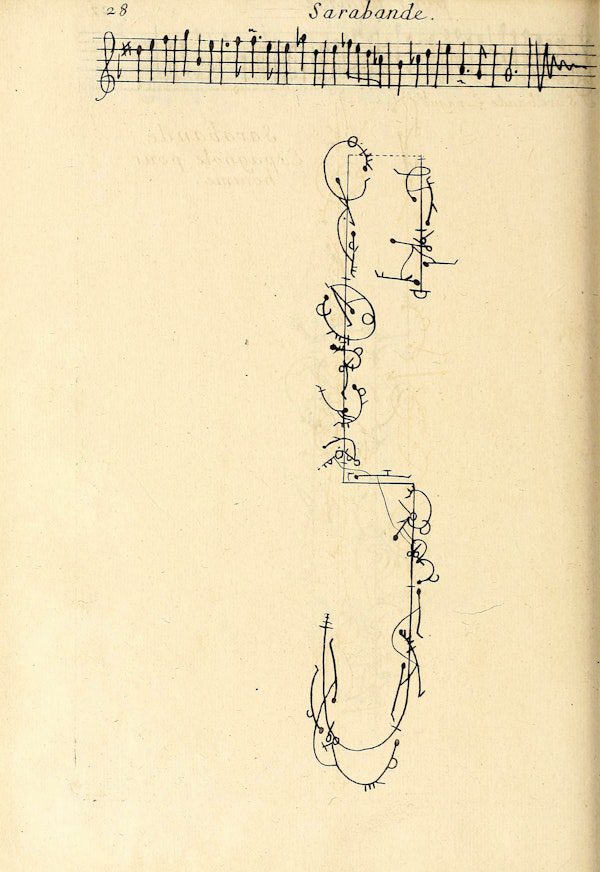 28 Sarabande.